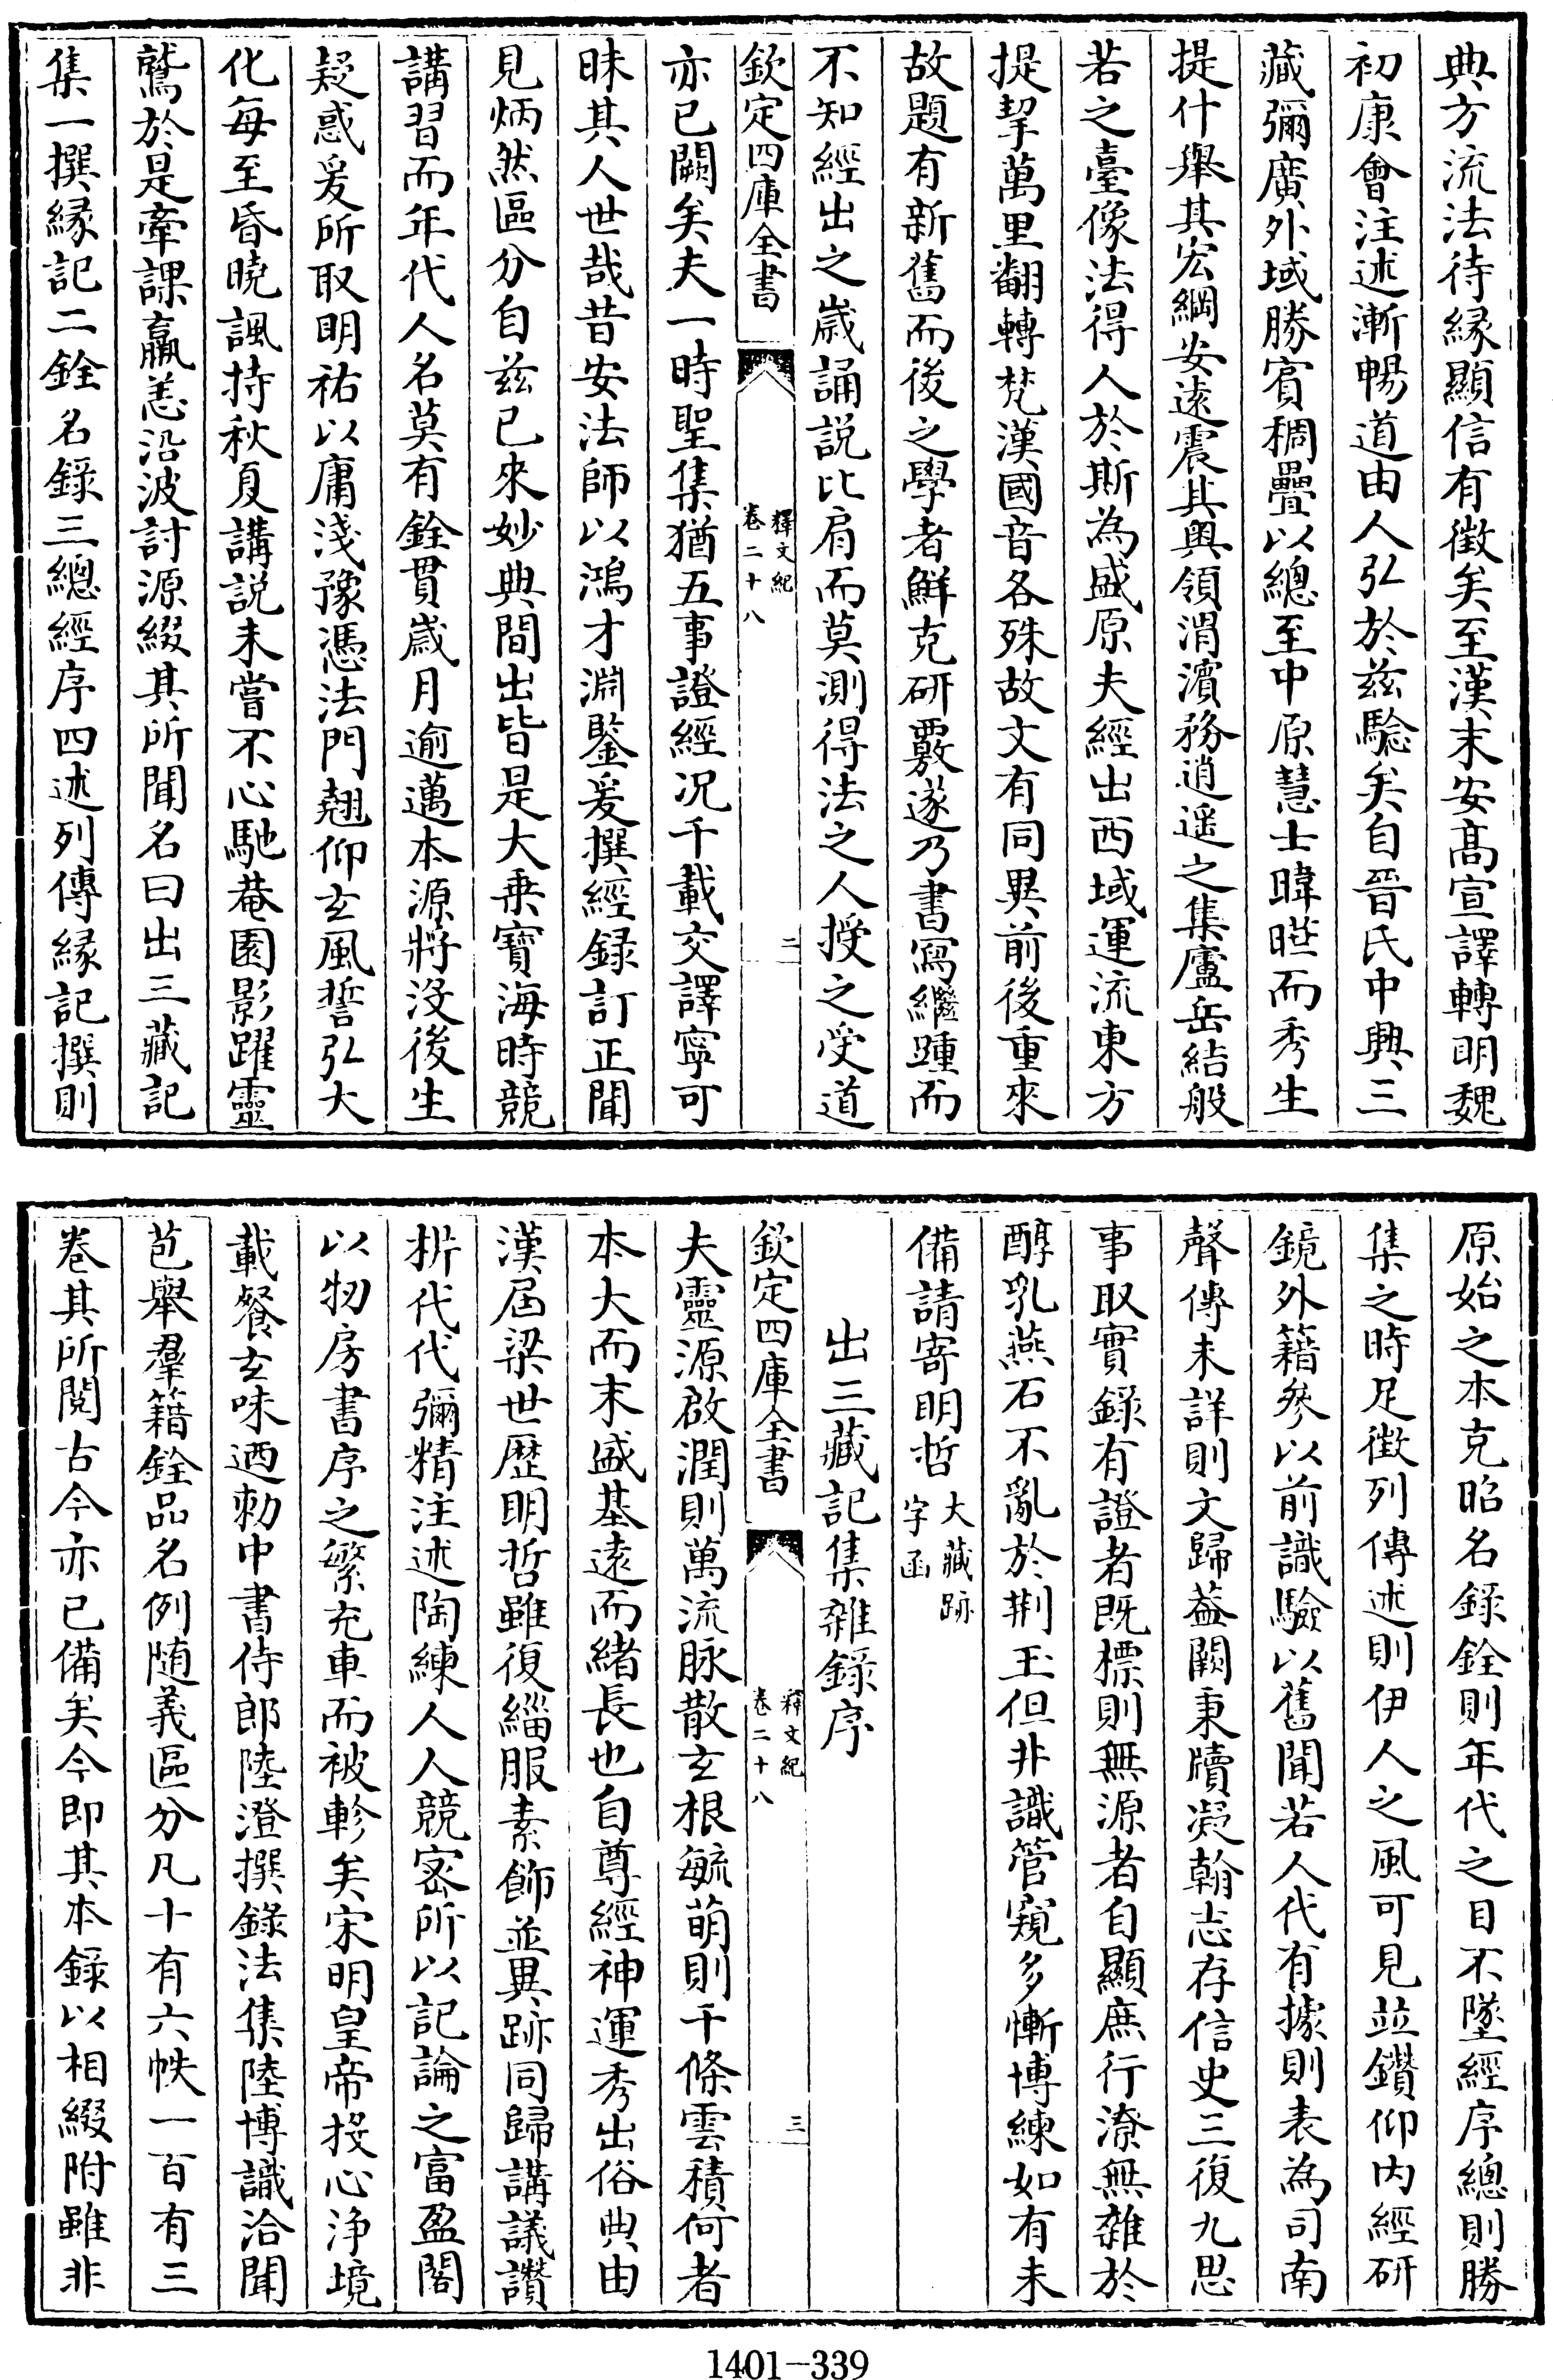 典方流法待緣顯信有徴矣至漢末安髙宣譯轉明魏
初康㑹注述漸暢道由人弘於兹驗矣自晉氏中興三
藏彌廣外域勝賓稠疊以總至中原慧士暐曄而秀生
提什舉其宏綱安逺震其奥領渭濱務逍遥之集廬岳結般
若之臺像法得人於斯為盛原夫經出西域運流東方
提挈萬里翻轉梵漢國音各殊故文有同異前後重來
故題有新舊而後之學者鮮克研覈遂乃書寫繼踵而
不知經出之嵗誦説比肩而莫測得法之人授之受道
欽定四庫全書
釋文紀
卷二十八
二
亦已闕矣夫一時聖集猶五事證經况千載交譯寧可
昧其人世哉昔安法師以鴻才淵鑒爰撰經録訂正聞
見炳然區分自兹已來妙典間出皆是大乗寳海時競
講習而年代人名莫有銓貫嵗月逾邁本源將沒後生
疑惑爰所取明祐以庸淺豫憑法門翹仰玄風誓弘大
化每至昏曉諷持秋夏講説未嘗不心馳菴園影躍靈
鷲於是牽課羸恙沿波討源綴其所聞名曰出三藏記
集一撰緣記二銓名錄三總經序四述列傳緣記撰則
原始之本克昭名錄銓則年代之目不墜經序總則勝
集之時足徴列傳述則伊人之風可見並鑽仰内經研
鏡外籍參以前識驗以舊聞若人代有據則表為司南
聲傳未詳則文歸葢闕秉牘凝翰志存信史三復九思
事取實錄有證者既標則無源者自顯庶行潦無雜於
醇乳燕石不亂於荆玉但非識管窺多慚博練如有未
備請寄明哲
大藏跡
字函
出三藏記集雜錄序
欽定四庫全書
釋文紀
卷二十八
三
夫靈源啟潤則萬流脉散玄根毓萌則千條雲積何者
本大而末盛基逺而緒長也自尊經神運秀出俗典由
漢屆梁世歴明哲雖復緇服素飾並異跡同歸講議讚
析代代彌精注述陶練人人競密所以記論之富盈閣
以牣房書序之繁充車而被軫矣宋明皇帝投心浄境
載餐玄味迺勅中書侍郎陸澄撰錄法集陸博識洽聞
苞舉羣籍銓品名例随義區分凡十有六帙一百有三
卷其所閲古今亦已備矣今即其本錄以相綴附雖非
1401-339